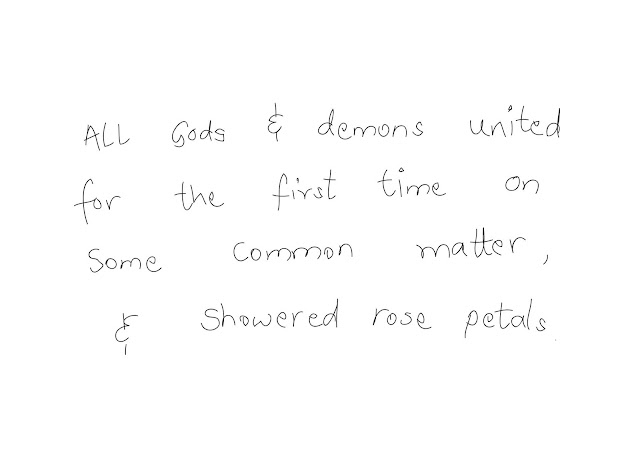 ALL Gods & demons united
for the first time on
some common matter,
& showered rose petals.